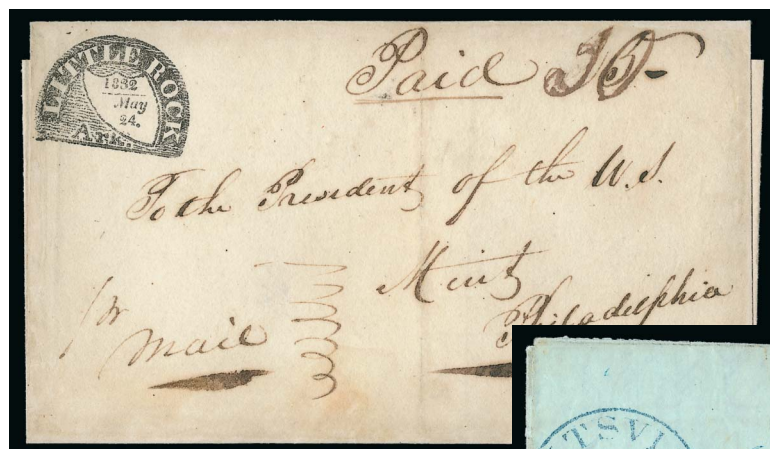 LITTLE ROCK
1832
May
24.
Ark.
Paid
To the President of the U.S.
Mint
Philadelphia
pr
mail